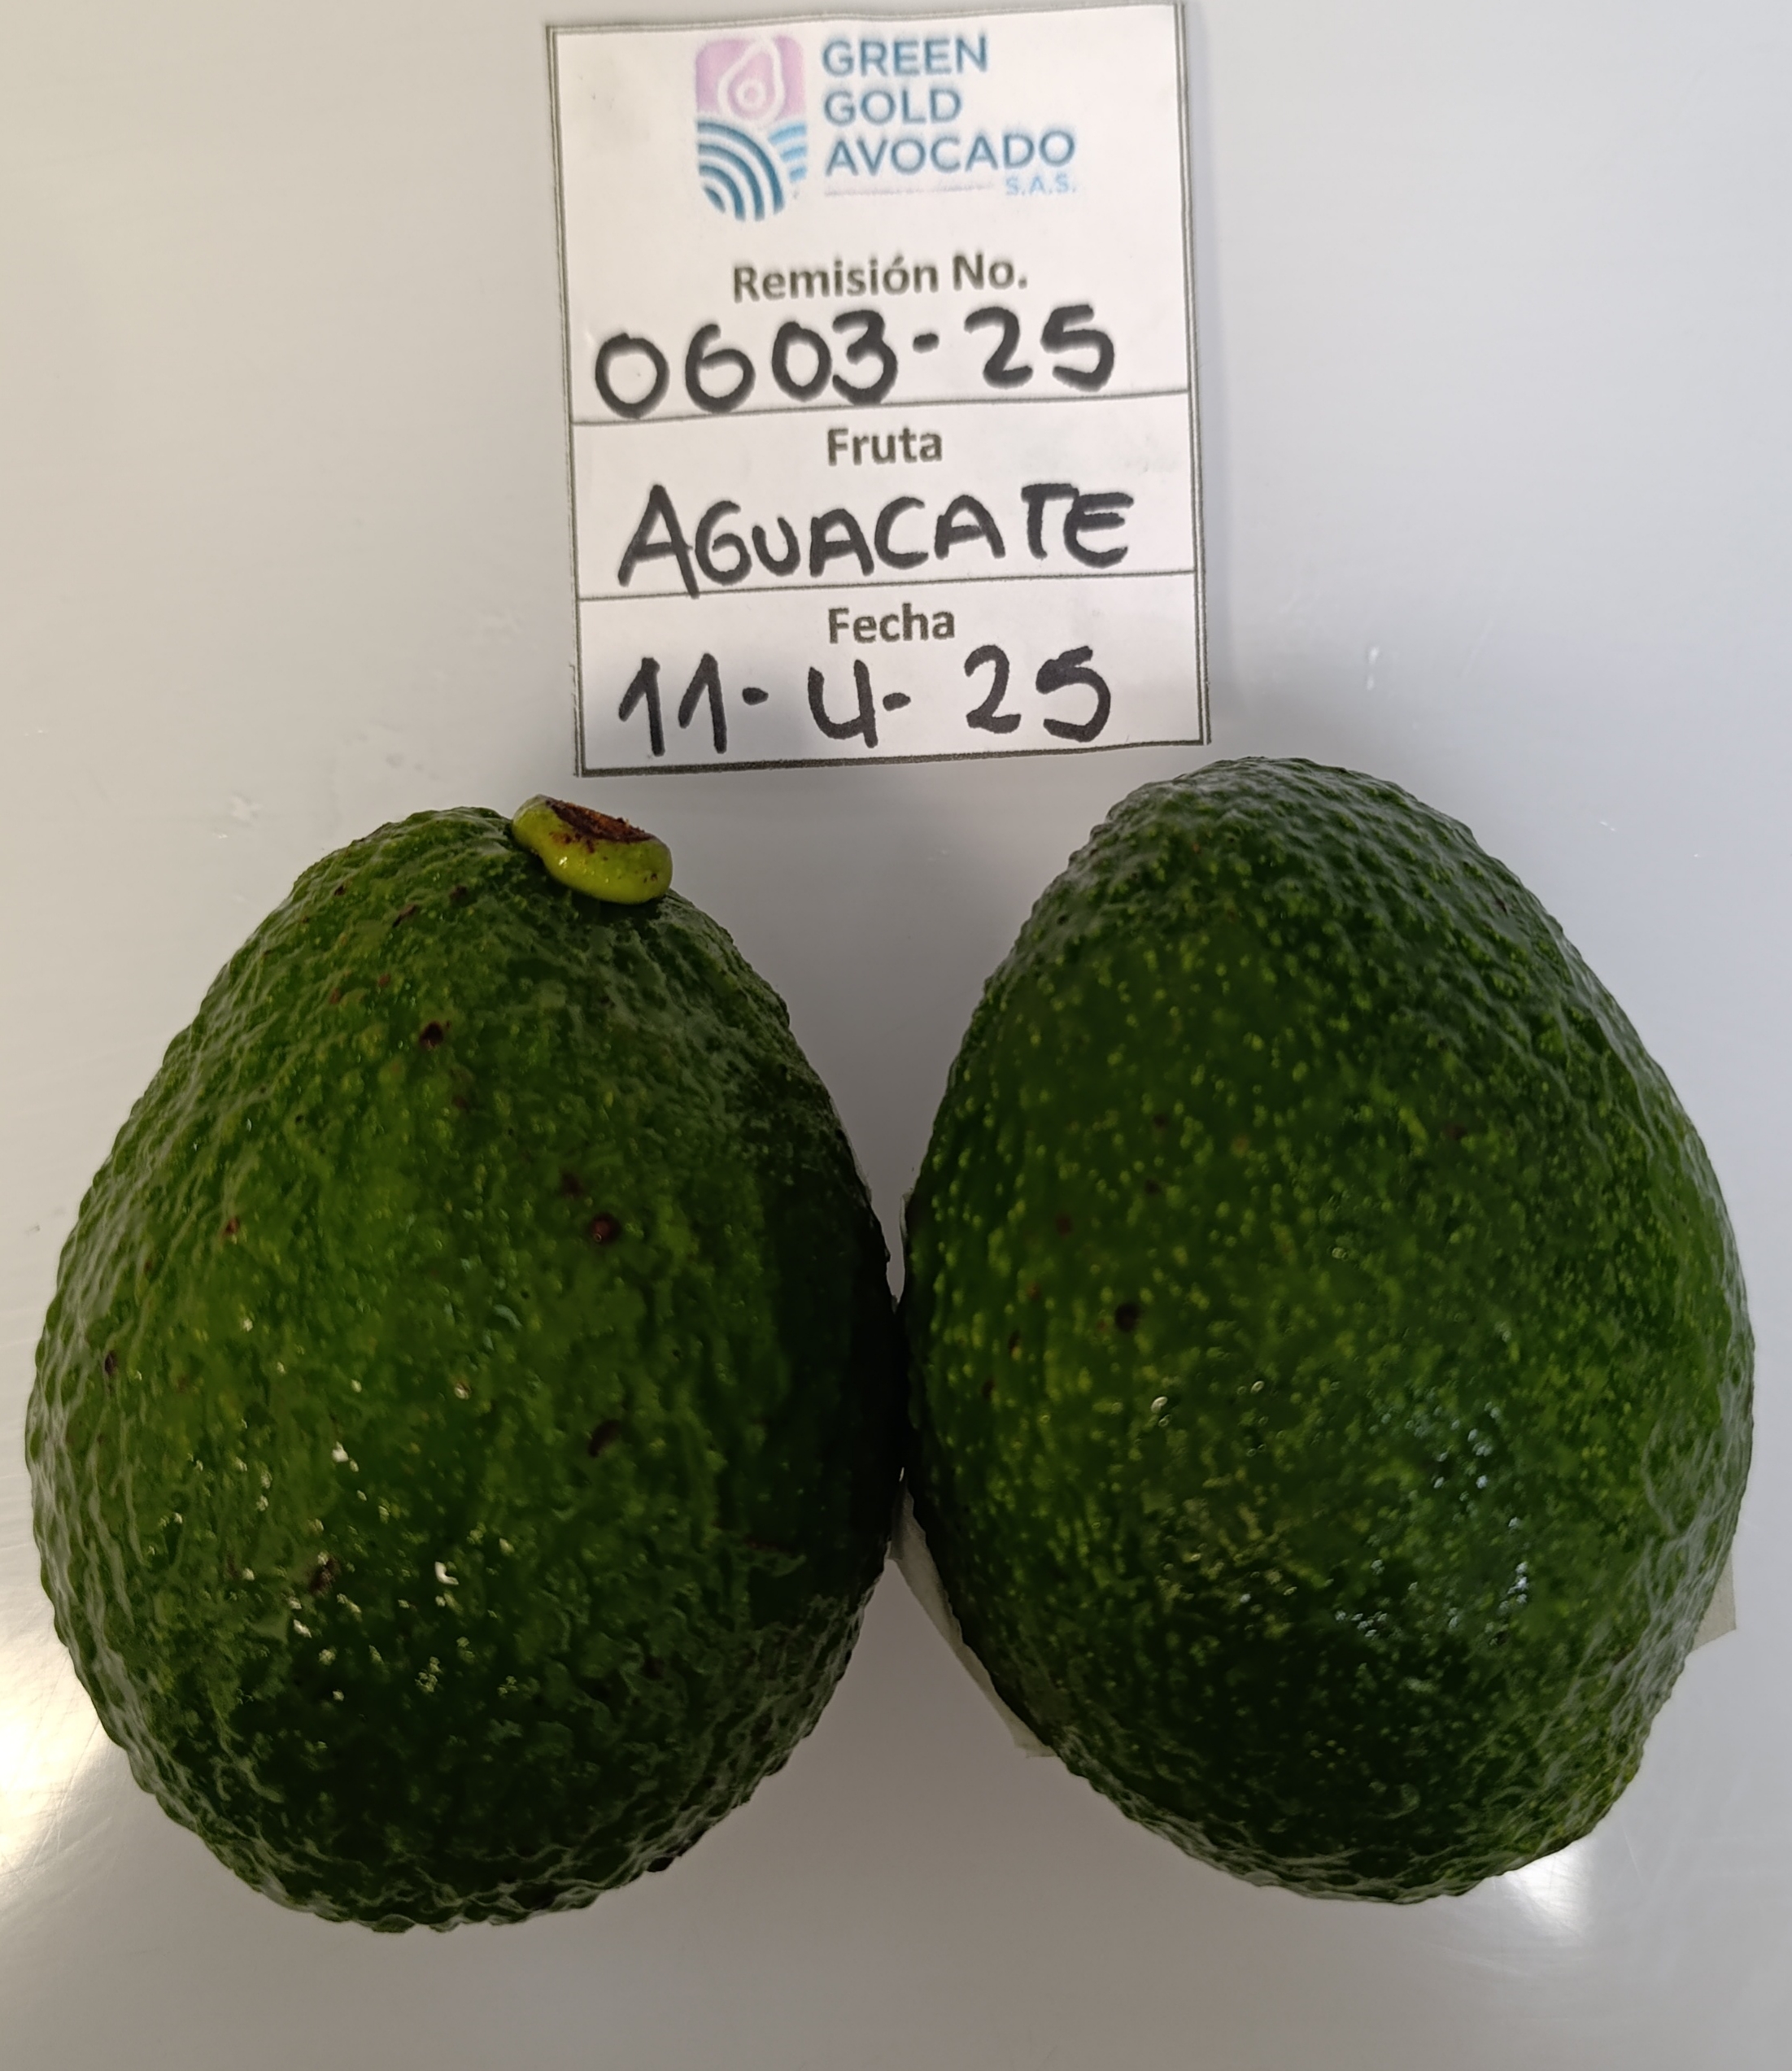 GREEN
GOLD
AVOCADO
S.A.S.
Remisión No.
0603-25
Fruta
AGUACATE
Fecha
11-4-25